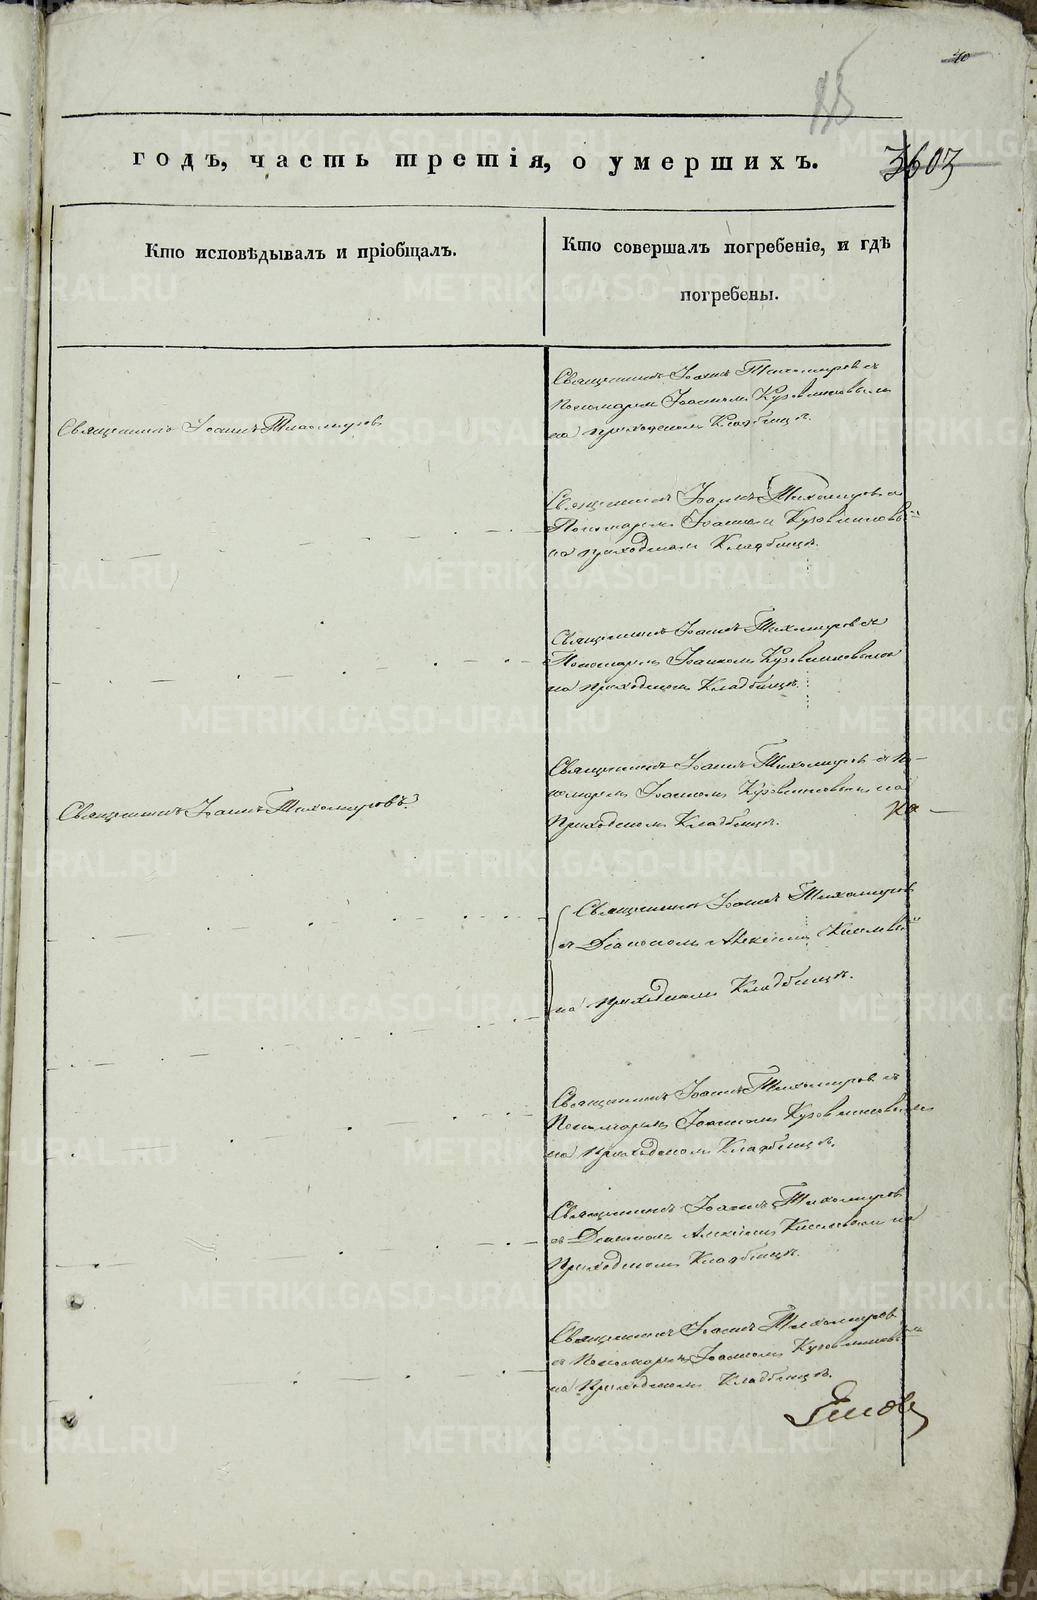 40
годъ, часть третія, о умершихъ.
3603
Кто исповѣдывалъ и пріобщалъ.
Кто совершалъ погребеніе, и гдѣ
погребены.
Священникъ Іоаннъ Тихомировъ
Священникъ Іоаннъ Тихомировъ съ
Пономаремъ Іоанномъ Кузовниковымъ
на приходскомъ Кладбищѣ.
Священникъ Іоаннъ Тихомировъ съ
Пономаремъ Іоанномъ Кузовниковы
на приходскомъ Кладбищѣ.
Священникъ Іоаннъ Тихомировъ съ
Пономаремъ Іоанномъ Кузовниковымъ
на приходскомъ Кладбищѣ.
Священникъ Іоаннъ Тихомировъ.
Священникъ Іоаннъ Тихомировъ съ По-
номаремъ Іоанномъ Кузовниковымъ на
Приходскомъ Кладбищѣ.
Священникъ Іоаннъ Тихомировъ
съ Діакономъ Алексіемъ
на приходскомъ Кладбищѣ.
Священникъ Іоаннъ Тихомировъ съ
Пономаремъ Іоанномъ Кузовниковымъ
на приходскомъ Кладбищѣ.
Священникъ Іоаннъ Тихомировъ
съ Діакономъ Алексіемъ на
Приходскомъ Кладбищѣ.
Священникъ Іоаннъ Тихомировъ
съ Пономаремъ Іоанномъ Кузовниковы
на Приходскомъ Кладбищѣ.
METRIKI.GASO-URAL.RU